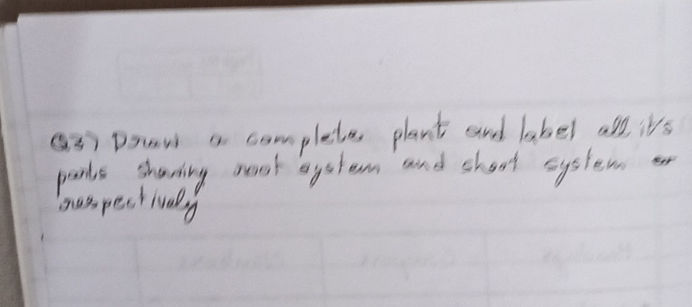 Q3) Draw a complete plant and label all it's
parts showing root system and shoot system or
respectively